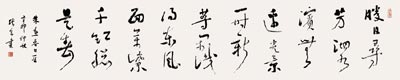 勝日尋
芳泗水
濱無
邊光景
一時新
等閒識
得東風
面萬紫
千紅總
是春
朱熹春日一首